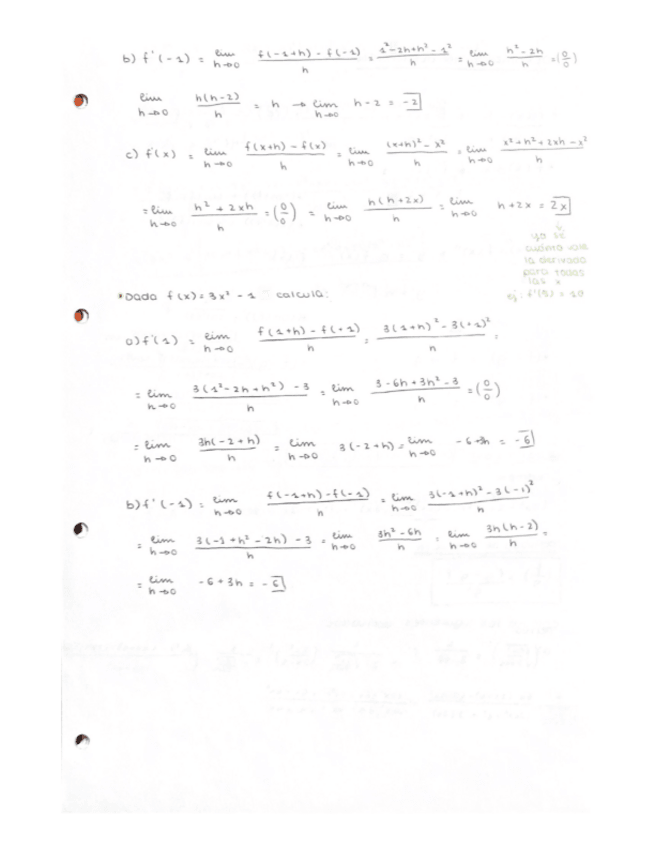 b) f'(-1) = lim h→0 f(-1+h) - f(-1) / h = 1² - 2h + h² - 1² / h = lim h→0 h² - 2h / h = (0/0)
lim h→0 h(h-2) / h = h → lim h→0 h - 2 = -2
c) f'(x) = lim h→0 f(x+h) - f(x) / h = lim h→0 (x+h)² - x² / h = lim h→0 x² + h² + 2xh - x² / h
= lim h→0 h² + 2xh / h = (0/0) = lim h→0 h(h+2x) / h = lim h→0 h + 2x = 2x
ya sé
cuánto vale
la derivada
para todas
las x
ej: f'(5) = 10
*Dada f(x) = 3x² - 1 calcula:
a) f'(1) = lim h→0 f(1+h) - f(+1) / h = 3(1+h)² - 3(+1)² / h =
= lim h→0 3(1² - 2h + h²) - 3 / h = lim h→0 3 - 6h + 3h² - 3 / h = (0/0)
= lim h→0 3h(-2+h) / h = lim h→0 3(-2+h) = lim h→0 -6+3h = -6
b) f'(-1) = lim h→0 f(-1+h) - f(-1) / h = lim h→0 3(-1+h)² - 3(-1)² / h
= lim h→0 3(-1+h² - 2h) - 3 / h = lim h→0 3h² - 6h / h = lim h→0 3h(h-2) / h =
= lim h→0 -6 + 3h = -6